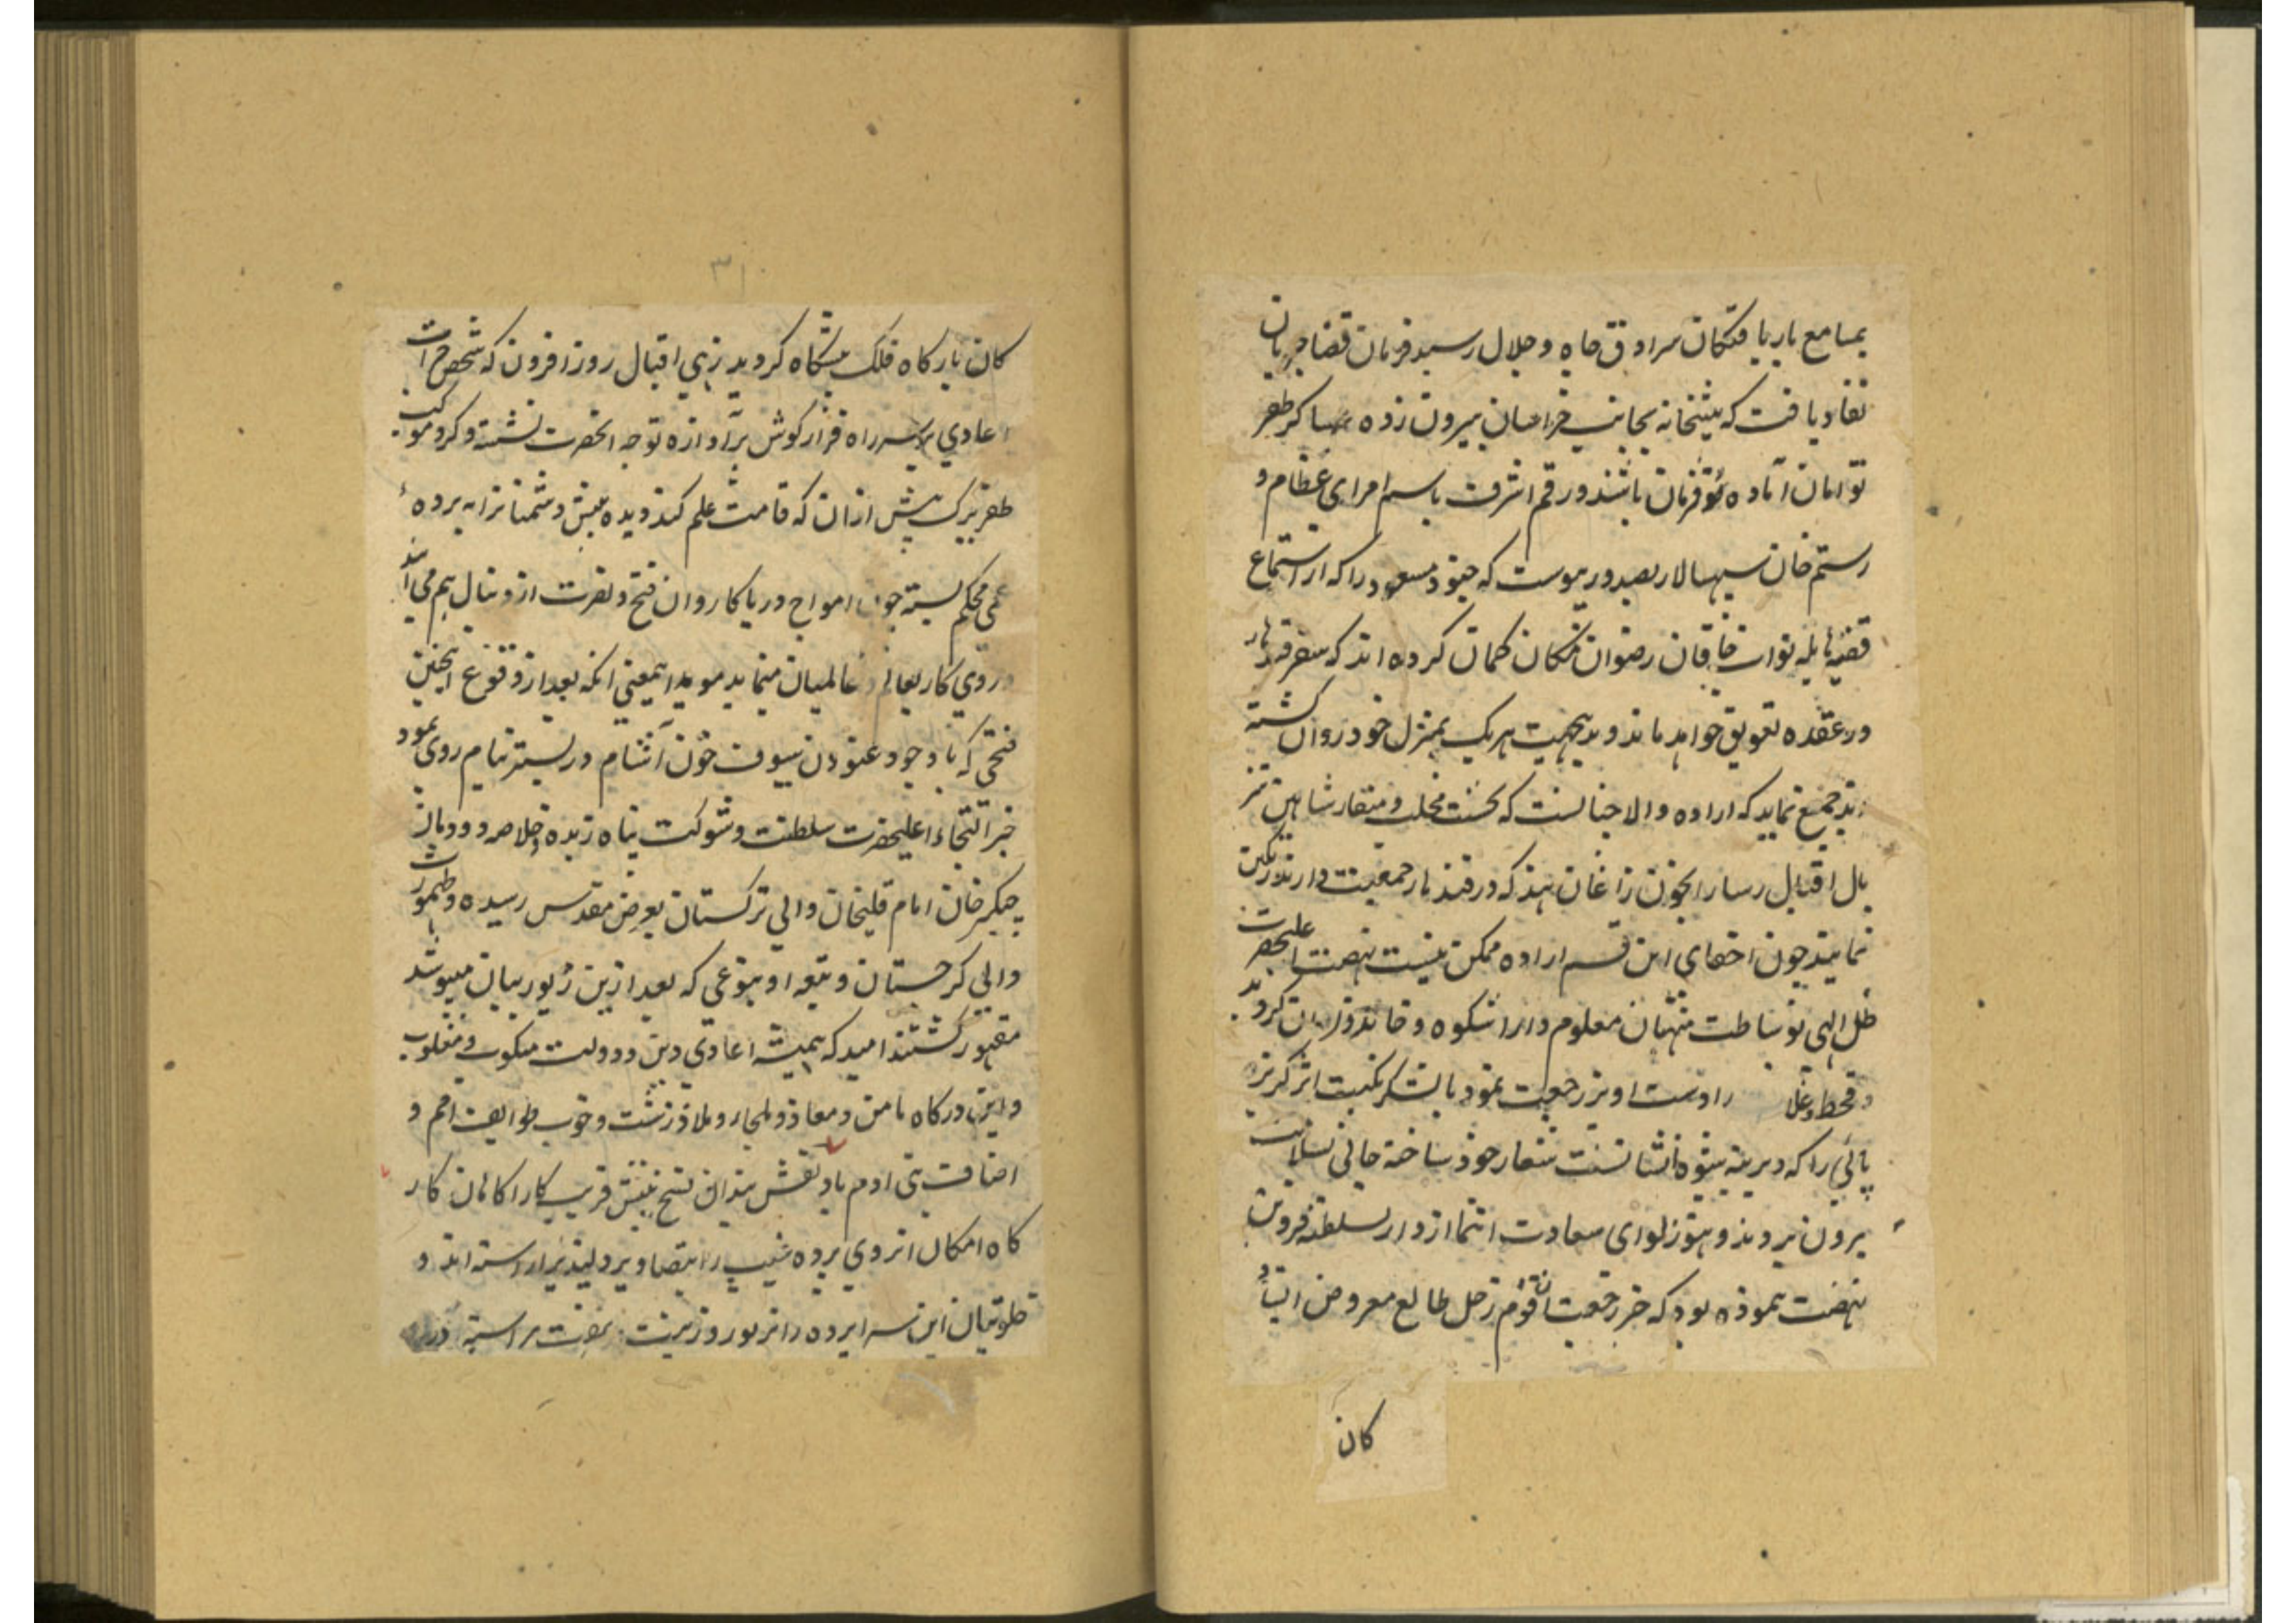 بمسامع باریافتکان سرادق جاه و جلال رسید فرمان قضا جریان
نفاد یافت که پیشخانه بجانب خراسان بیرون زده عساکر ظفر
توامان آماده سفر فرمان باشند و رقم اشرف باسم امرای عظام و
رستم خان سپهسالار بصدور پیوست که جنود مسعود را که از استماع
قضیه هایله نواب خاقان رضوان مکان کمان کرده اند که سفر قندهار
در عقده تعویق خواهد ماند و بدینجهت هر یک بمنزل خود روان کشته
اند جمع نماید که اراده والا چنانست که نخست مخلب و منقار شاهین تیز
بال اقبال رسا را بخون زاغان هند که در قندهار جمعیت دارند رنکین
نمایند چون اخفای این قسم اراده ممکن نیست نهضت اعلیحضرت
ظل الهی بوساطت منهیان معلوم دارا شکوه و خاندوران کردید
و قحط و غلا را دست اویز رجعت نمود با لشکر نکبت اثر کریز
پائی را که دیرینه شیوه ایشانست شعار خود ساخته جانی بسلامت
بیرون بردند و هنوز لوای سعادت انتما از دار السلطنه قزوین
نهضت ننموده بود که خبر رجعت ان قوم زحل طالع معروض ایستاد
کان
۳۱۰
کان بارکاه فلک پیشکاه کردید زهی اقبال روز افزون که شخص جرات
اعادی بر سر راه فرار کوش بر آوازه توجه انحضرت نشسته و کرد موکب
ظفر بزک پیش ازان که قامت علم کند دیده بینش دشمنانرا به پرده
عمی محکم بسته چون امواج دریا کاروان فتح و نصرت از دنبال هم می آید
و روی کار بعالم و عالمیان مینماید موید اینمعنی انکه بعد از وقوع اینچنین
فتحی که با وجود غنودن سیوف خون آشام در بستر نیام روی نمود
خبر التجاء اعلیحضرت سلطنت و شوکت پناه زبده و خلاصه دودمان
چنکیز خان امام قلیخان والی ترکستان بعرض مقدس رسیده و طهمورث
والی کرجستان و تبعه او بنوعی که بعد ازین زیور بیان میپوشد
مقهور کشتند امید که همیشه اعادی دین و دولت منکوب و مغلوب
و این درکاه مامن و معاذ و ملجاء و ملاذ زشت و خوب طوایف امم و
اصناف بنی ادم باد نقش بندان نسخ بینش فریب کار اکاهان کار
کاه امکان از روی پرده غیب را بتصاویر دلپذیر اراسته اند و
خلوتیان این سرا پرده را بزیور و زینت